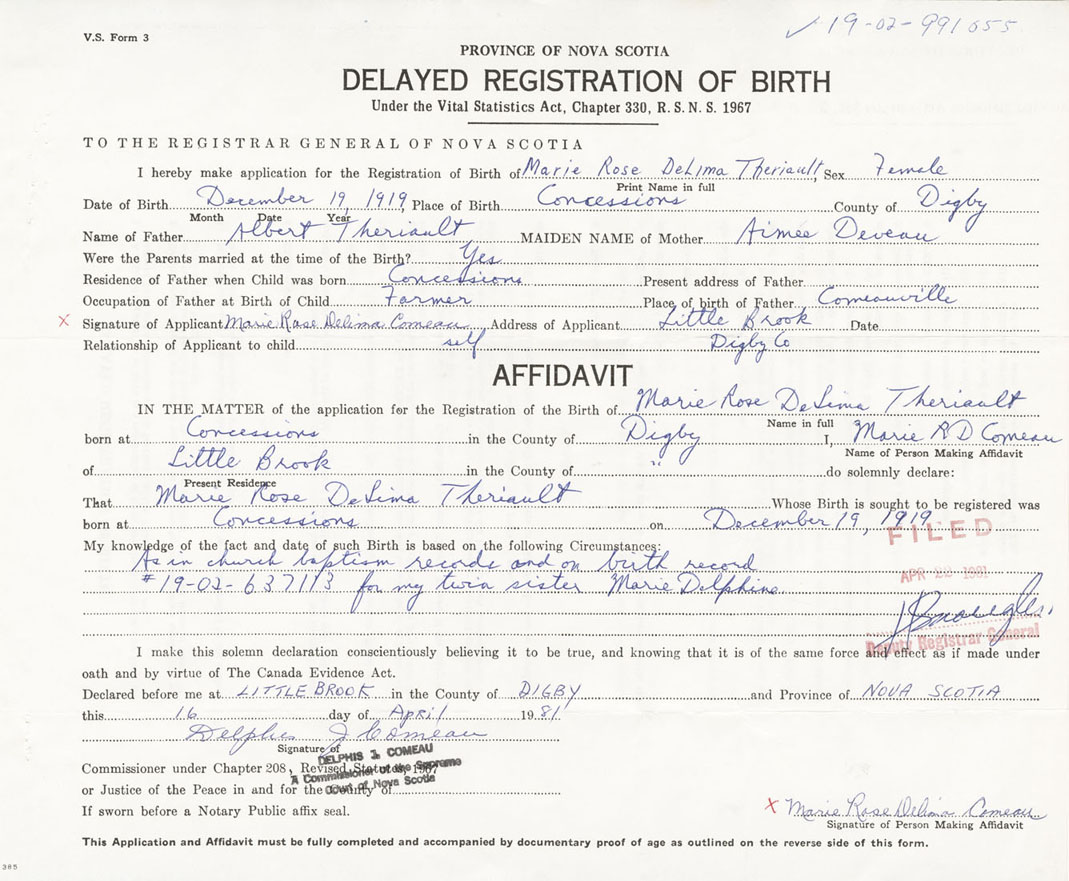 19-02-991055
V.S. Form 3
PROVINCE OF NOVA SCOTIA
DELAYED REGISTRATION OF BIRTH
Under the Vital Statistics Act, Chapter 330, R. S. N. S. 1967
TO THE REGISTRAR GENERAL OF NOVA SCOTIA
I hereby make application for the Registration of Birth of Marie Rose DeLima Theriault Sex Female
Print Name in full
Date of Birth December 19, 1919 Place of Birth Concessions County of Digby
Month Date Year
Name of Father Albert Theriault MAIDEN NAME of Mother Aimee Deveau
Were the Parents married at the time of the Birth? Yes
Residence of Father when Child was born Concessions Present address of Father
Occupation of Father at Birth of Child Farmer Place of birth of Father Comeauville
X Signature of Applicant Marie Rose Delima Comeau Address of Applicant Little Brook Date
Relationship of Applicant to child self Digby Co
AFFIDAVIT
IN THE MATTER of the application for the Registration of the Birth of Marie Rose DeLima Theriault
Name in full
born at Concessions in the County of Digby I, Marie R D Comeau
Name of Person Making Affidavit
of Little Brook in the County of " do solemnly declare:
Present Residence
That Marie Rose DeLima Theriault Whose Birth is sought to be registered was
born at Concessions on December 19, 1919
FILED
My knowledge of the fact and date of such Birth is based on the following Circumstances:
As in church baptism records and on birth record
APR 22 1981
# 19-02-637113 for my twin sister Marie Delphine
Deputy Registrar General
I make this solemn declaration conscientiously believing it to be true, and knowing that it is of the same force and effect as if made under
oath and by virtue of The Canada Evidence Act.
Declared before me at LITTLE BROOK in the County of DIGBY and Province of NOVA SCOTIA
this 16 day of April 1981
Delphis J Comeau
Signature of
DELPHIS J. COMEAU
Commissioner under Chapter 208, Revised Statutes, 1967
A Commissioner of the Supreme
Court of Nova Scotia
or Justice of the Peace in and for the County of
If sworn before a Notary Public affix seal.
X Marie Rose Delima Comeau
Signature of Person Making Affidavit
This Application and Affidavit must be fully completed and accompanied by documentary proof of age as outlined on the reverse side of this form.
385